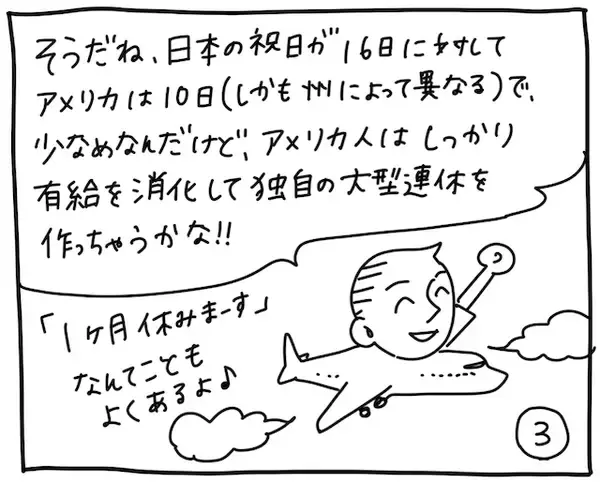 そうだね、日本の祝日が16日に対して
アメリカは10日(しかも州によって異なる)で、
少なめなんだけど、アメリカ人はしっかり
有給を消化して独自の大型連休を
作っちゃうかな!!
「1ヶ月休みまーす」
なんてことも
よくあるよ♪
3